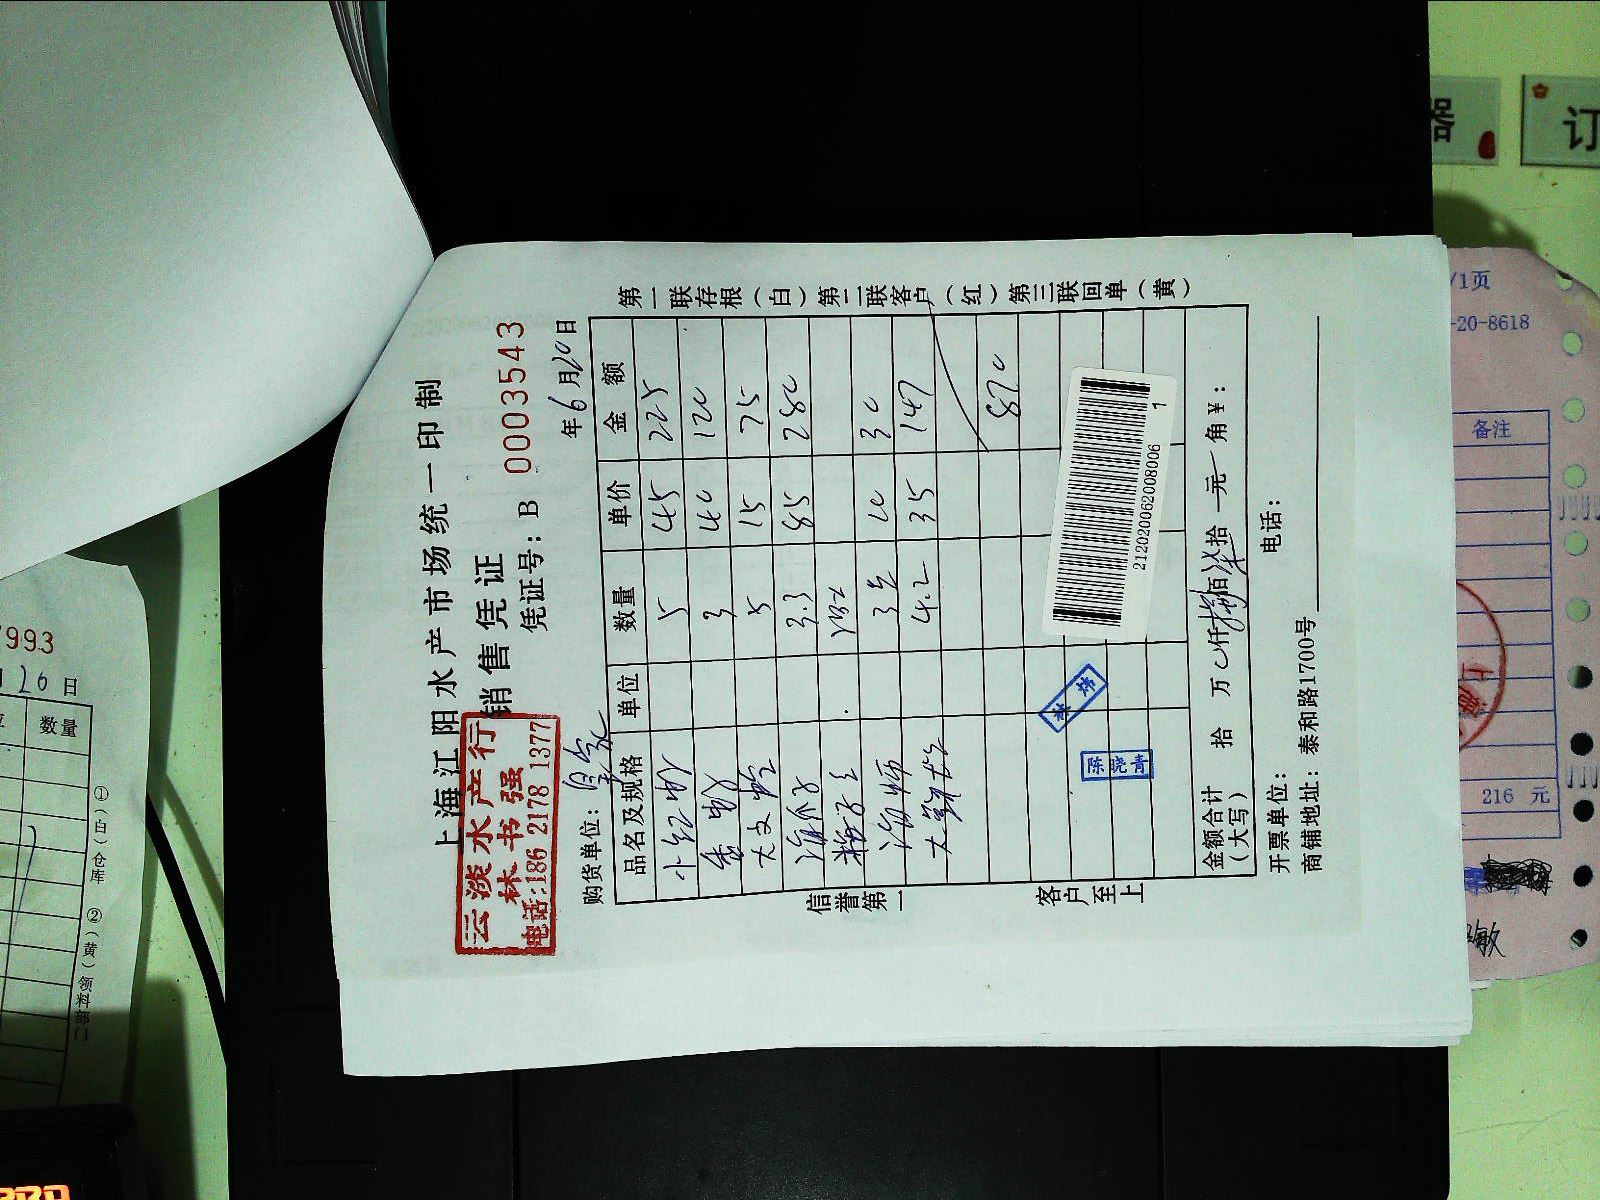 上海江阳水产市场统一印制
销售凭证
云淡水产行
林书强
电话:186 2178 1377
凭证号：B 0003543
购货单位：
年6月20日
品名及规格 单位 数量 单价 金额
小红虾 5 45 225
3 40 120
5 15 75
3.3 85 280
10 30
4.2 35 147
870
212020062008006 1
林炜
陈晓青
金额合计（大写） 拾 万 仟 捌佰 柒拾 元 角 ¥：
开票单位： 电话：
商铺地址：泰和路1700号
第一联存根（白）第二联客户（红）第三联回单（黄）
信誉第一
客户至上
7993
26日
数量
①（白）仓库 ②（黄）领料部门
器
订
/1页
-20-8618
备注
216 元
上海
敏